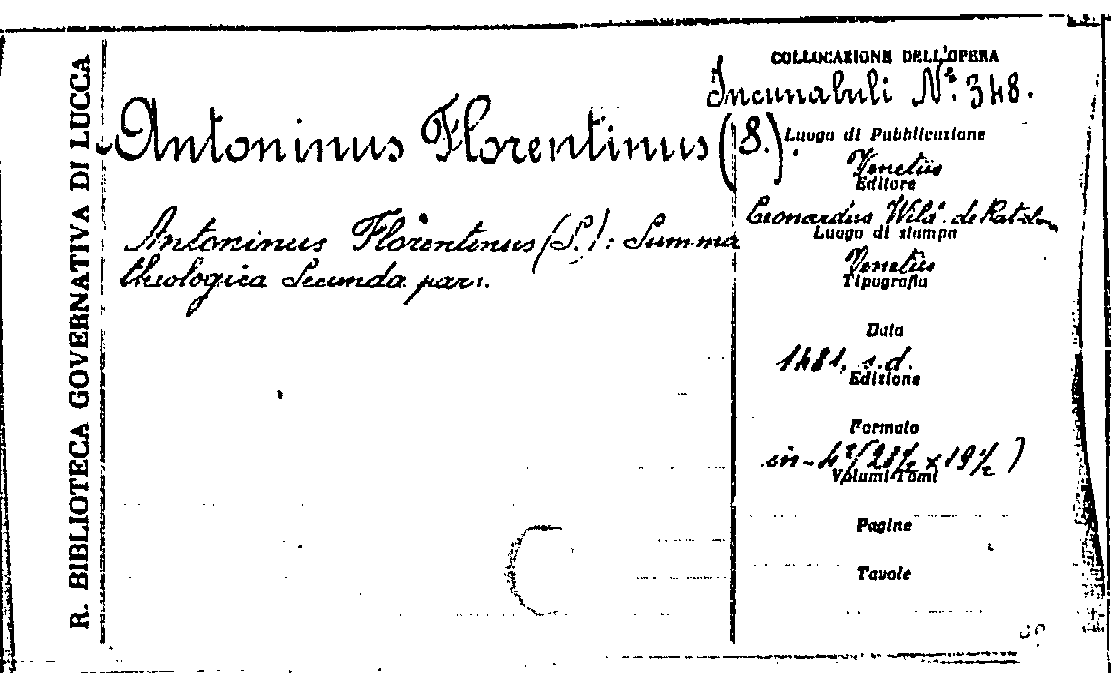 R. BIBLIOTECA GOVERNATIVA DI LUCCA
Antoninus Florentinus (S.).
Antoninus Florentinus (S.): Summa
theologica Secunda pars.
COLLOCAZIONE DELL'OPERA
Incunabuli N.º 348.
Luogo di Pubblicazione
Venetiis
Editore
Leonardus Wild. de Ratisbona
Luogo di stampa
Venetiis
Tipografia
Data
1481, s.d.
Edizione
Formato
in-4º (28½ x 19½)
Volumi-Tomi
Pagine
Tavole